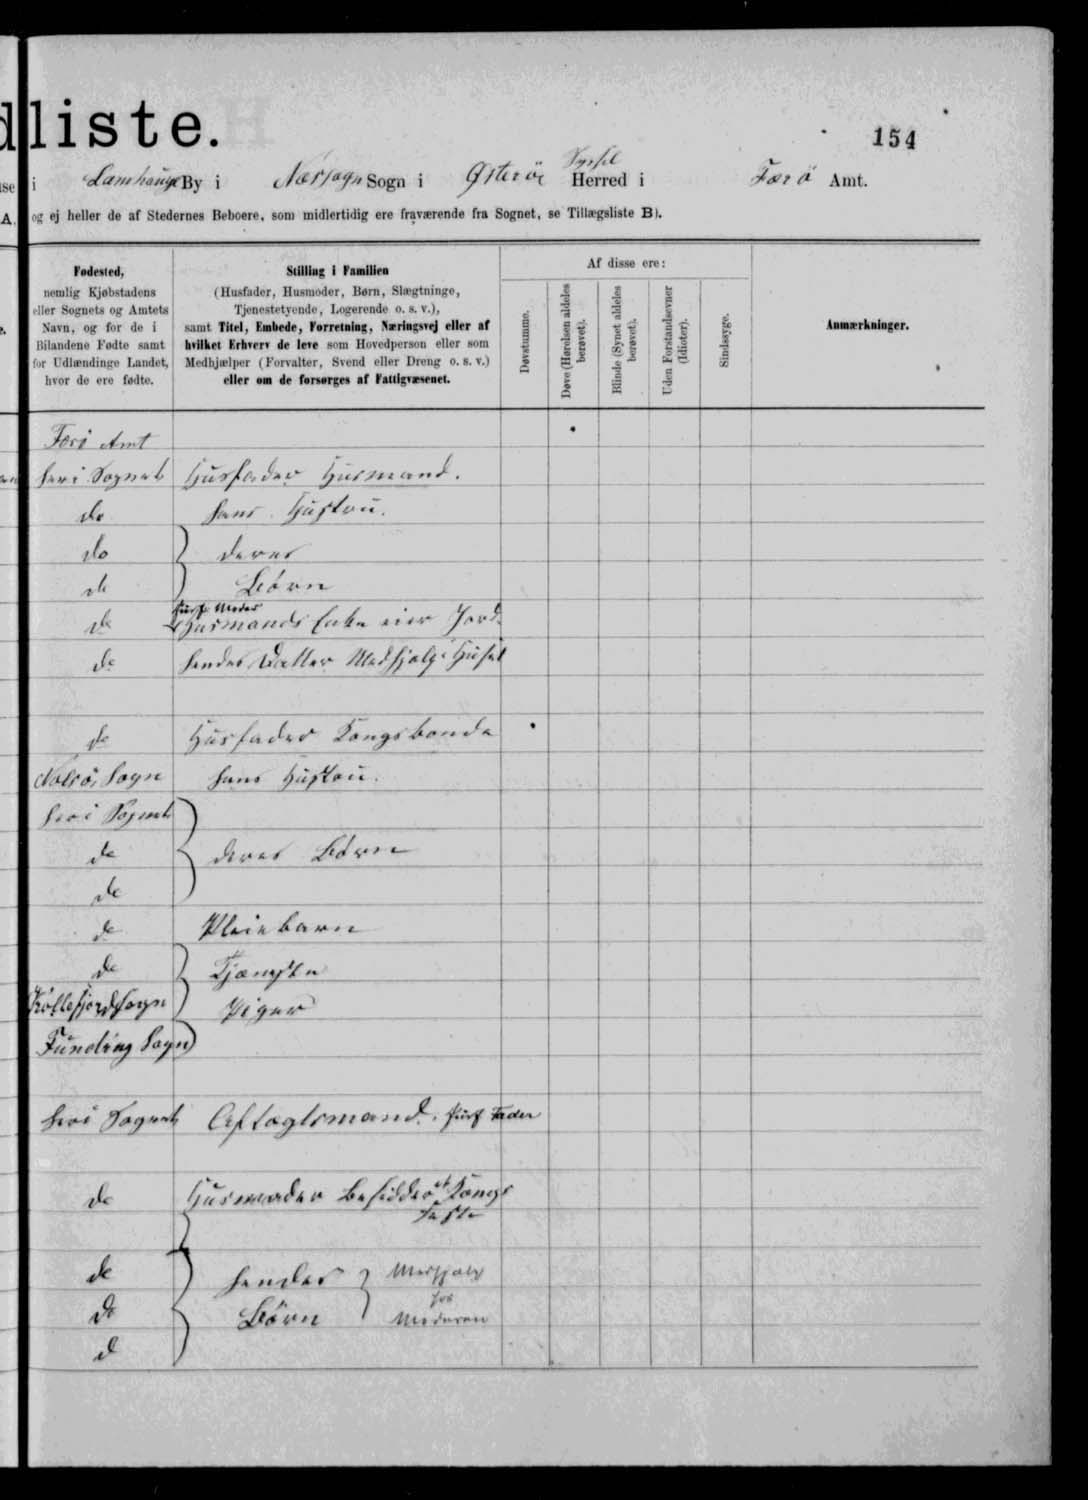 dliste.
154
i Lamhauge By i Næssogn Sogn i Østerøe Syssel Herred i Færø Amt.
A. og ej heller de af Stedernes Beboere, som midlertidig ere fraværende fra Sognet, se Tillægsliste B).
Fødested,
nemlig Kjøbstadens
eller Sognets og Amtets
Navn, og for de i
Bilandene Fødte samt
for Udlændinge Landet,
hvor de ere fødte.
Stilling i Familien
(Husfader, Husmoder, Børn, Slægtninge,
Tjenestetyende, Logerende o. s. v.),
samt Titel, Embede, Forretning, Næringsvej eller af
hvilket Erhverv de leve som Hovedperson eller som
Medhjælper (Forvalter, Svend eller Dreng o. s. v.)
eller om de forsørges af Fattigvæsenet.
Af disse ere:
Døvstumme.
Døve (Hørelsen aldeles
berøvet).
Blinde (Synet aldeles
berøvet).
Uden Forstandsevner
(Idioter).
Sindssyge.
Anmærkninger.
Færö Amt
her i Sognet Husfader Husmand.
do hans Hustru.
do deres
do Börn
Husf. Moder
do Husmands Enke eier Jord.
do hendes Datter Medhjælp i Huset
do Husfader Kongsbonde
Nolsö Sogn hans Hustru.
her i Sognet
do deres Börn
do
do Pleiebarn
do Tjeneste
Kollefjord Sogn Piger
Funding Sogn
her i Sognet Aftægtsmand. Husf Fader
do Husmoder besidder et Kongs
fæste
do hendes Medhjælp
for
do Börn Moderen
do